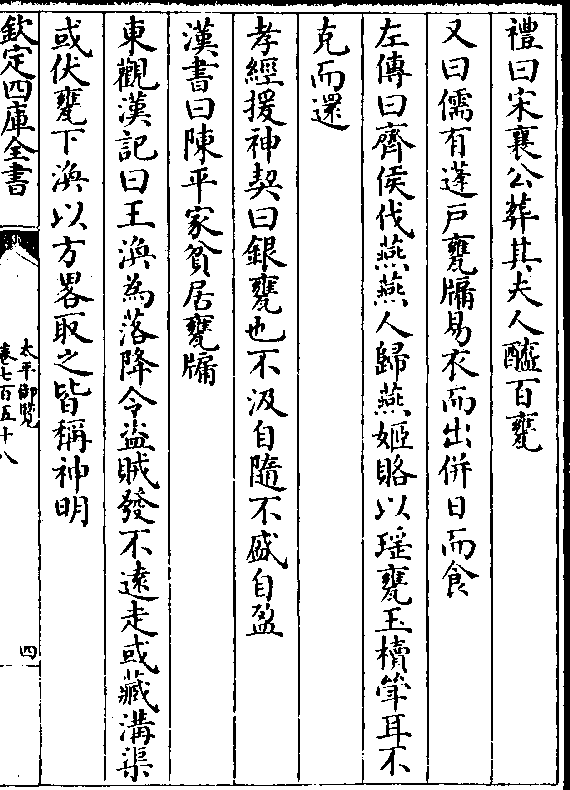 禮曰宋襄公葬其夫人醯百甕
又曰儒有蓬戸甕牖易衣而出併日而食
左傳曰齊侯伐燕燕人歸燕姬賂以瑶甕玉櫝斝耳不
克而還
孝經援神契曰銀甕也不汲自隨不盛自盈
漢書曰陳平家貧居甕牖
東觀漢記曰王渙為落降令盗賊發不逺走或藏溝渠
或伏甕下渙以方畧取之皆稱神明
欽定四庫全書
太平御覽
卷七百五十八
四